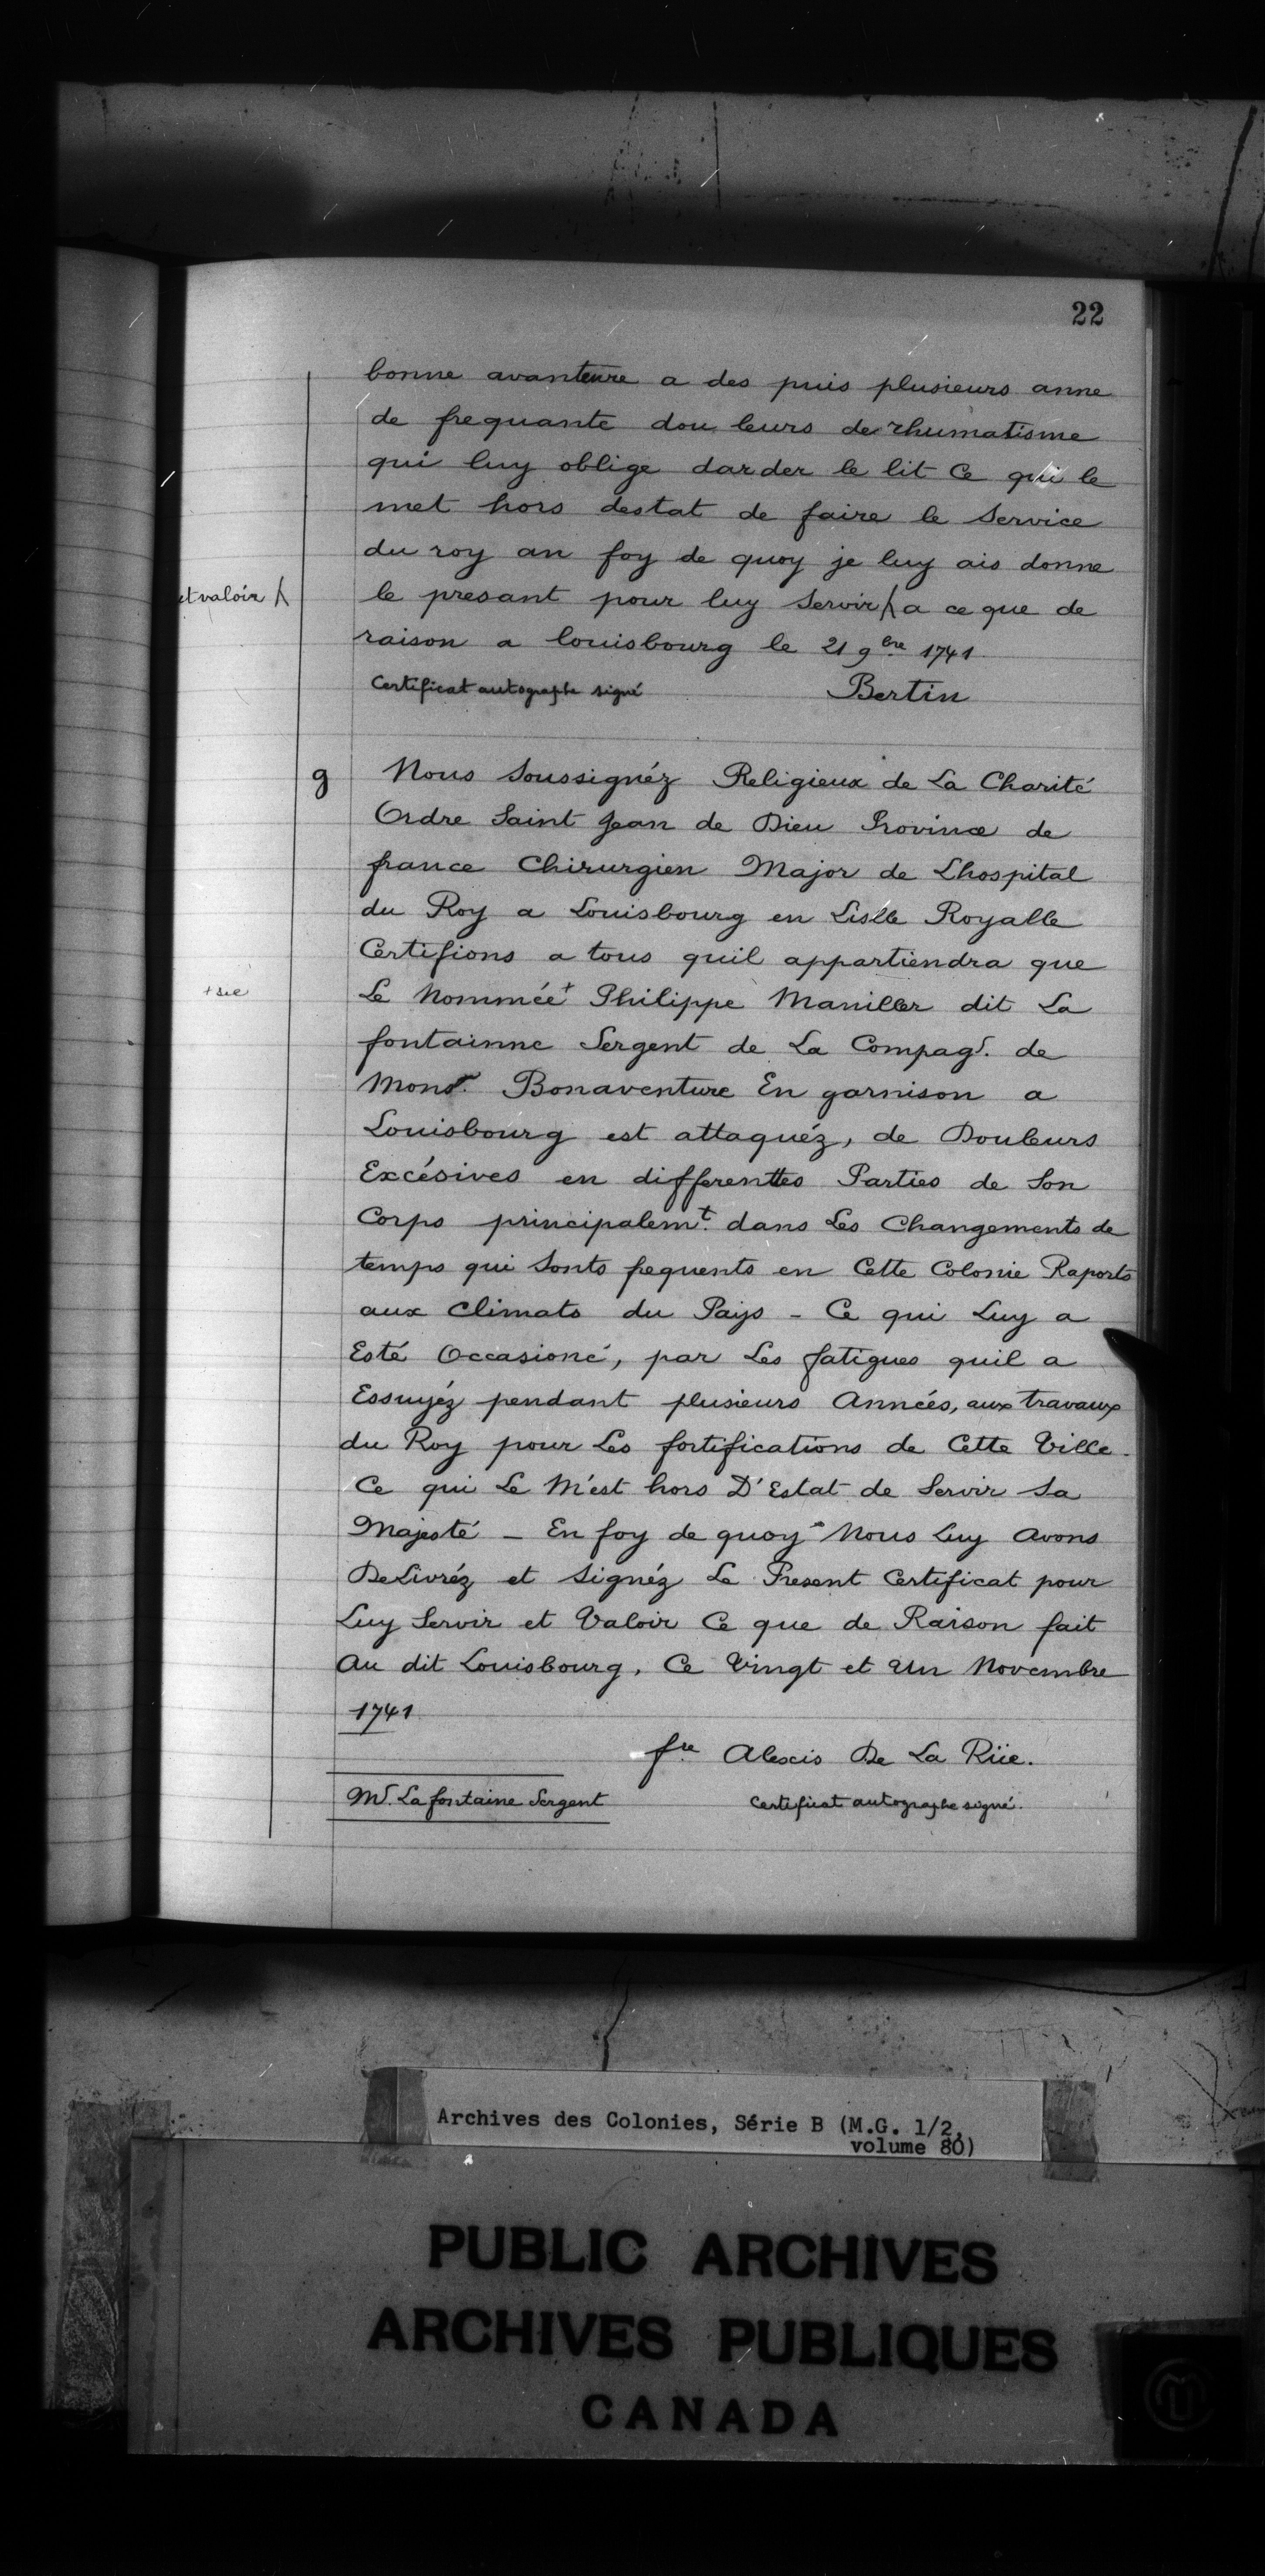 22
bonne avanteure a des puis plusieurs anne
de frequante dou leurs de rhumatisme
qui luy oblige darder le lit Ce qui le
met hors destat de faire le Service
du roy an foy de quoy je luy ais donne
et valoir /\
le presant pour luy Servir /\ a ce que de
raison a louisbourg le 21 9bre 1741
Certificat autographe signé Bertin
g Nous Soussignéz Religieux de La Charité
Ordre Saint Jean de Dieu Province de
france Chirurgien Major de Lhospital
du Roy a Louisbourg en Lislle Royalle
Certifions a tous quil appartiendra que
+ sic
Le Nommée+ Philippe Maniller dit La
fontainne Sergent de La Compag. de
Monsr. Bonaventure En garnison a
Louisbourg est attaquéz, de Douleurs
Excésives en differenttes Parties de Son
Corps principalemt. dans Les Changements de
temps qui Sonts fequents en Cette Colonie Raports
aux Climats du Pays - Ce qui Luy a
Esté Occasioné, par Les fatigues quil a
Essuyéz pendant plusieurs Annéés, aux travaux
du Roy pour Les fortifications de Cette Ville.
Ce qui Le M'est hors D'Estat de Servir Sa
Majesté - En foy de quoy Nous Luy Avons
DeLivréz et Signéz Le Present Certificat pour
Luy Servir et Valoir Ce que de Raison fait
Au dit Louisbourg, Ce Vingt et Un Novembre
1741
fre Alexis De La Rüe.
Mr. La fontaine Sergent Certificat autographe signé.
Archives des Colonies, Série B (M.G. 1/2,
volume 80)
PUBLIC ARCHIVES
ARCHIVES PUBLIQUES
CANADA